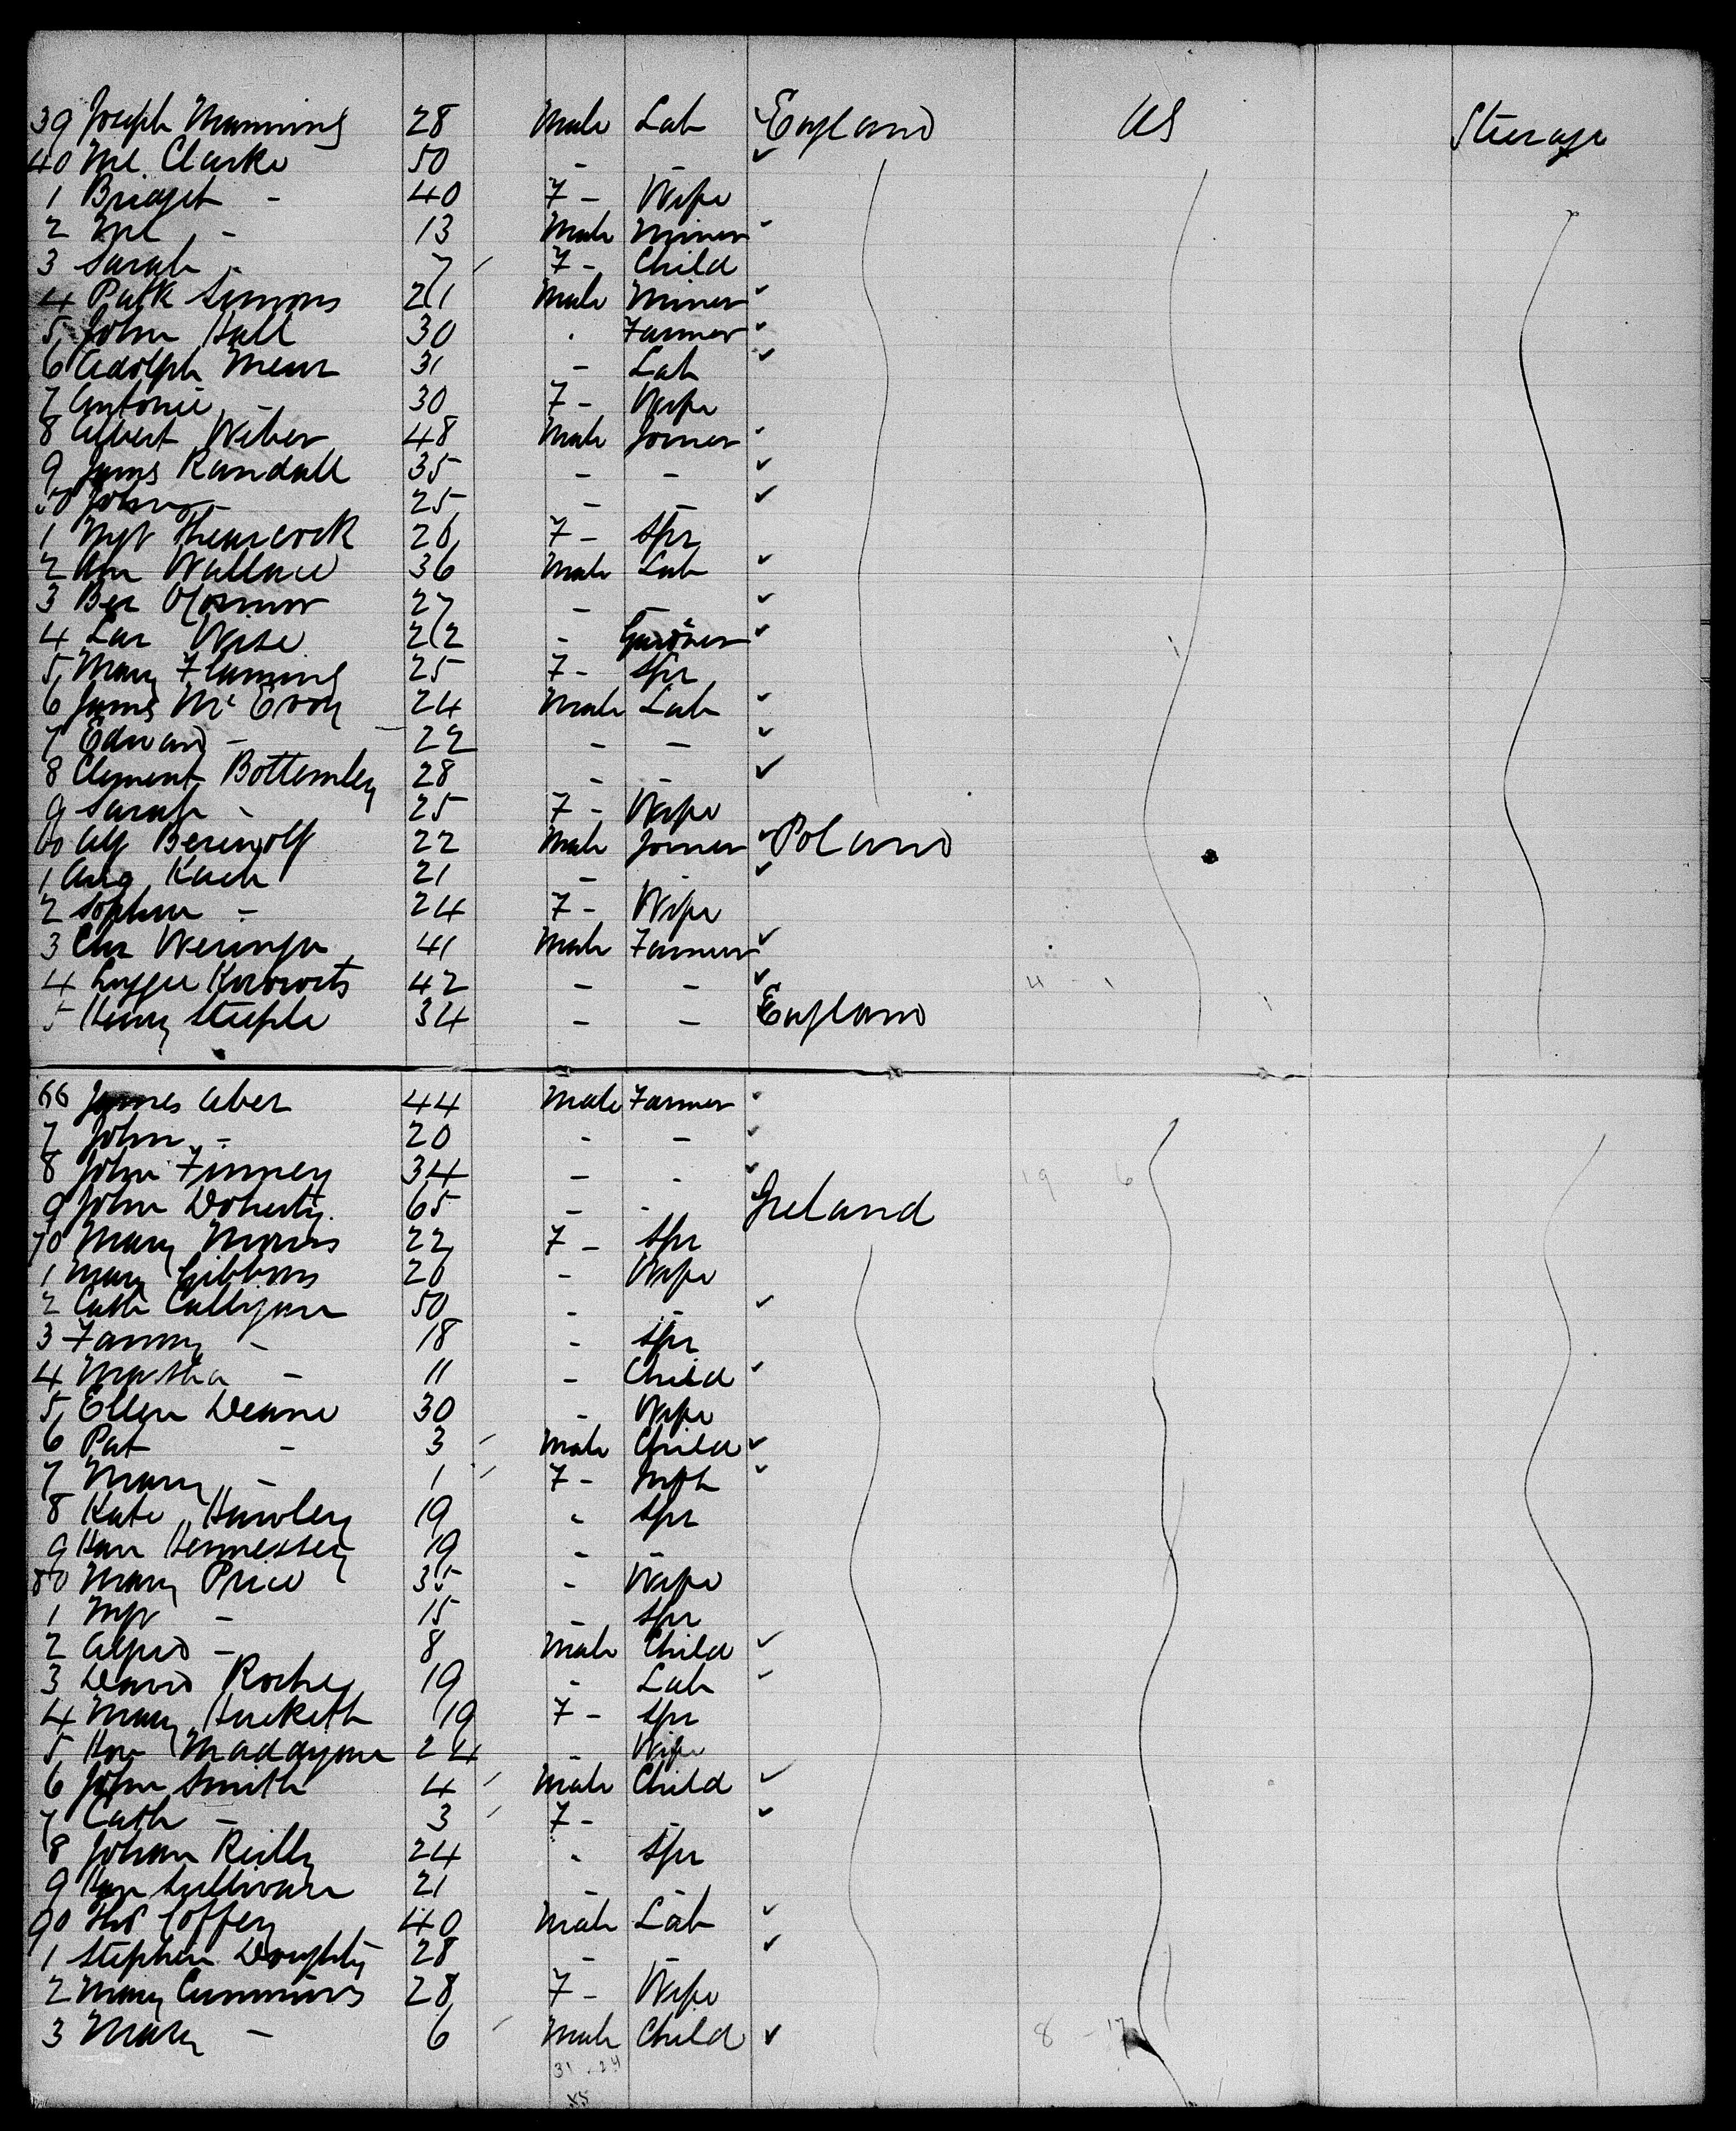 39 Joseph Manning 28 Male Lab England US Steerage
40 Ml Clarke 50 - -
1 Bridget - 40 F - Wife
2 Ml - 13 Male Miner
3 Sarah - 7 F - Child
4 Patk Simons 21 Male Miner
5 John Hall 30 . Farmer
6 Adolph 31 - Lab
7 Antonie - 30 F - Wife
8 Albert Weber 48 Male Joiner
9 James Randall 35 - -
50 John - 25 - -
1 Mgt 26 F - Spr
2 Wallace 36 Male Lab
3 27 - -
4 Wise 22 - Gardner
5 Mary Flaming 25 F - Spr
6 James McEvoy 24 Male Lab
7 Edward - 22 - -
8 Clement Bottemley 28 - -
9 Sarah - 25 F - Wife
60 Alf Berewolf 22 Male Joiner Poland
1 Aug 21 - -
2 Sophia - 24 F - Wife
3 41 Male Farmer
4 42 - -
5 Henry Steeple 34 - - England
66 James Aber 44 Male Farmer
7 John - 20 - -
8 John Finney 34 - -
9 John Doherty 65 - - Ireland
70 Mary Morris 22 F - Spr
1 Mary Gibbons 26 - Wife
2 Cath Calligan 50 - -
3 Fanny - 18 - Spr
4 Martha - 11 - Child
5 Ellen Deane 30 - Wife
6 Pat - 3 Male Child
7 Mary - 1 F - Inft
8 Kate Hawley 19 - Spr
9 Han Hennessey 19 - -
80 Mary Price 35 - Wife
1 Mgt - 15 - Spr
2 Alfred - 8 Male Child
3 David Roche 19 - Lab
4 Mary Hesketh 19 F - Spr
5 24 - Wife
6 John Smith 4 Male Child
7 Cath - 3 F - -
8 Johan Reilly 24 - Spr
9 Sullivan 21 - -
90 Thos Coffey 40 Male Lab
1 Stephen Doughty 28 - -
2 Mary Cummins 28 F - Wife
3 Mary - 6 Male Child